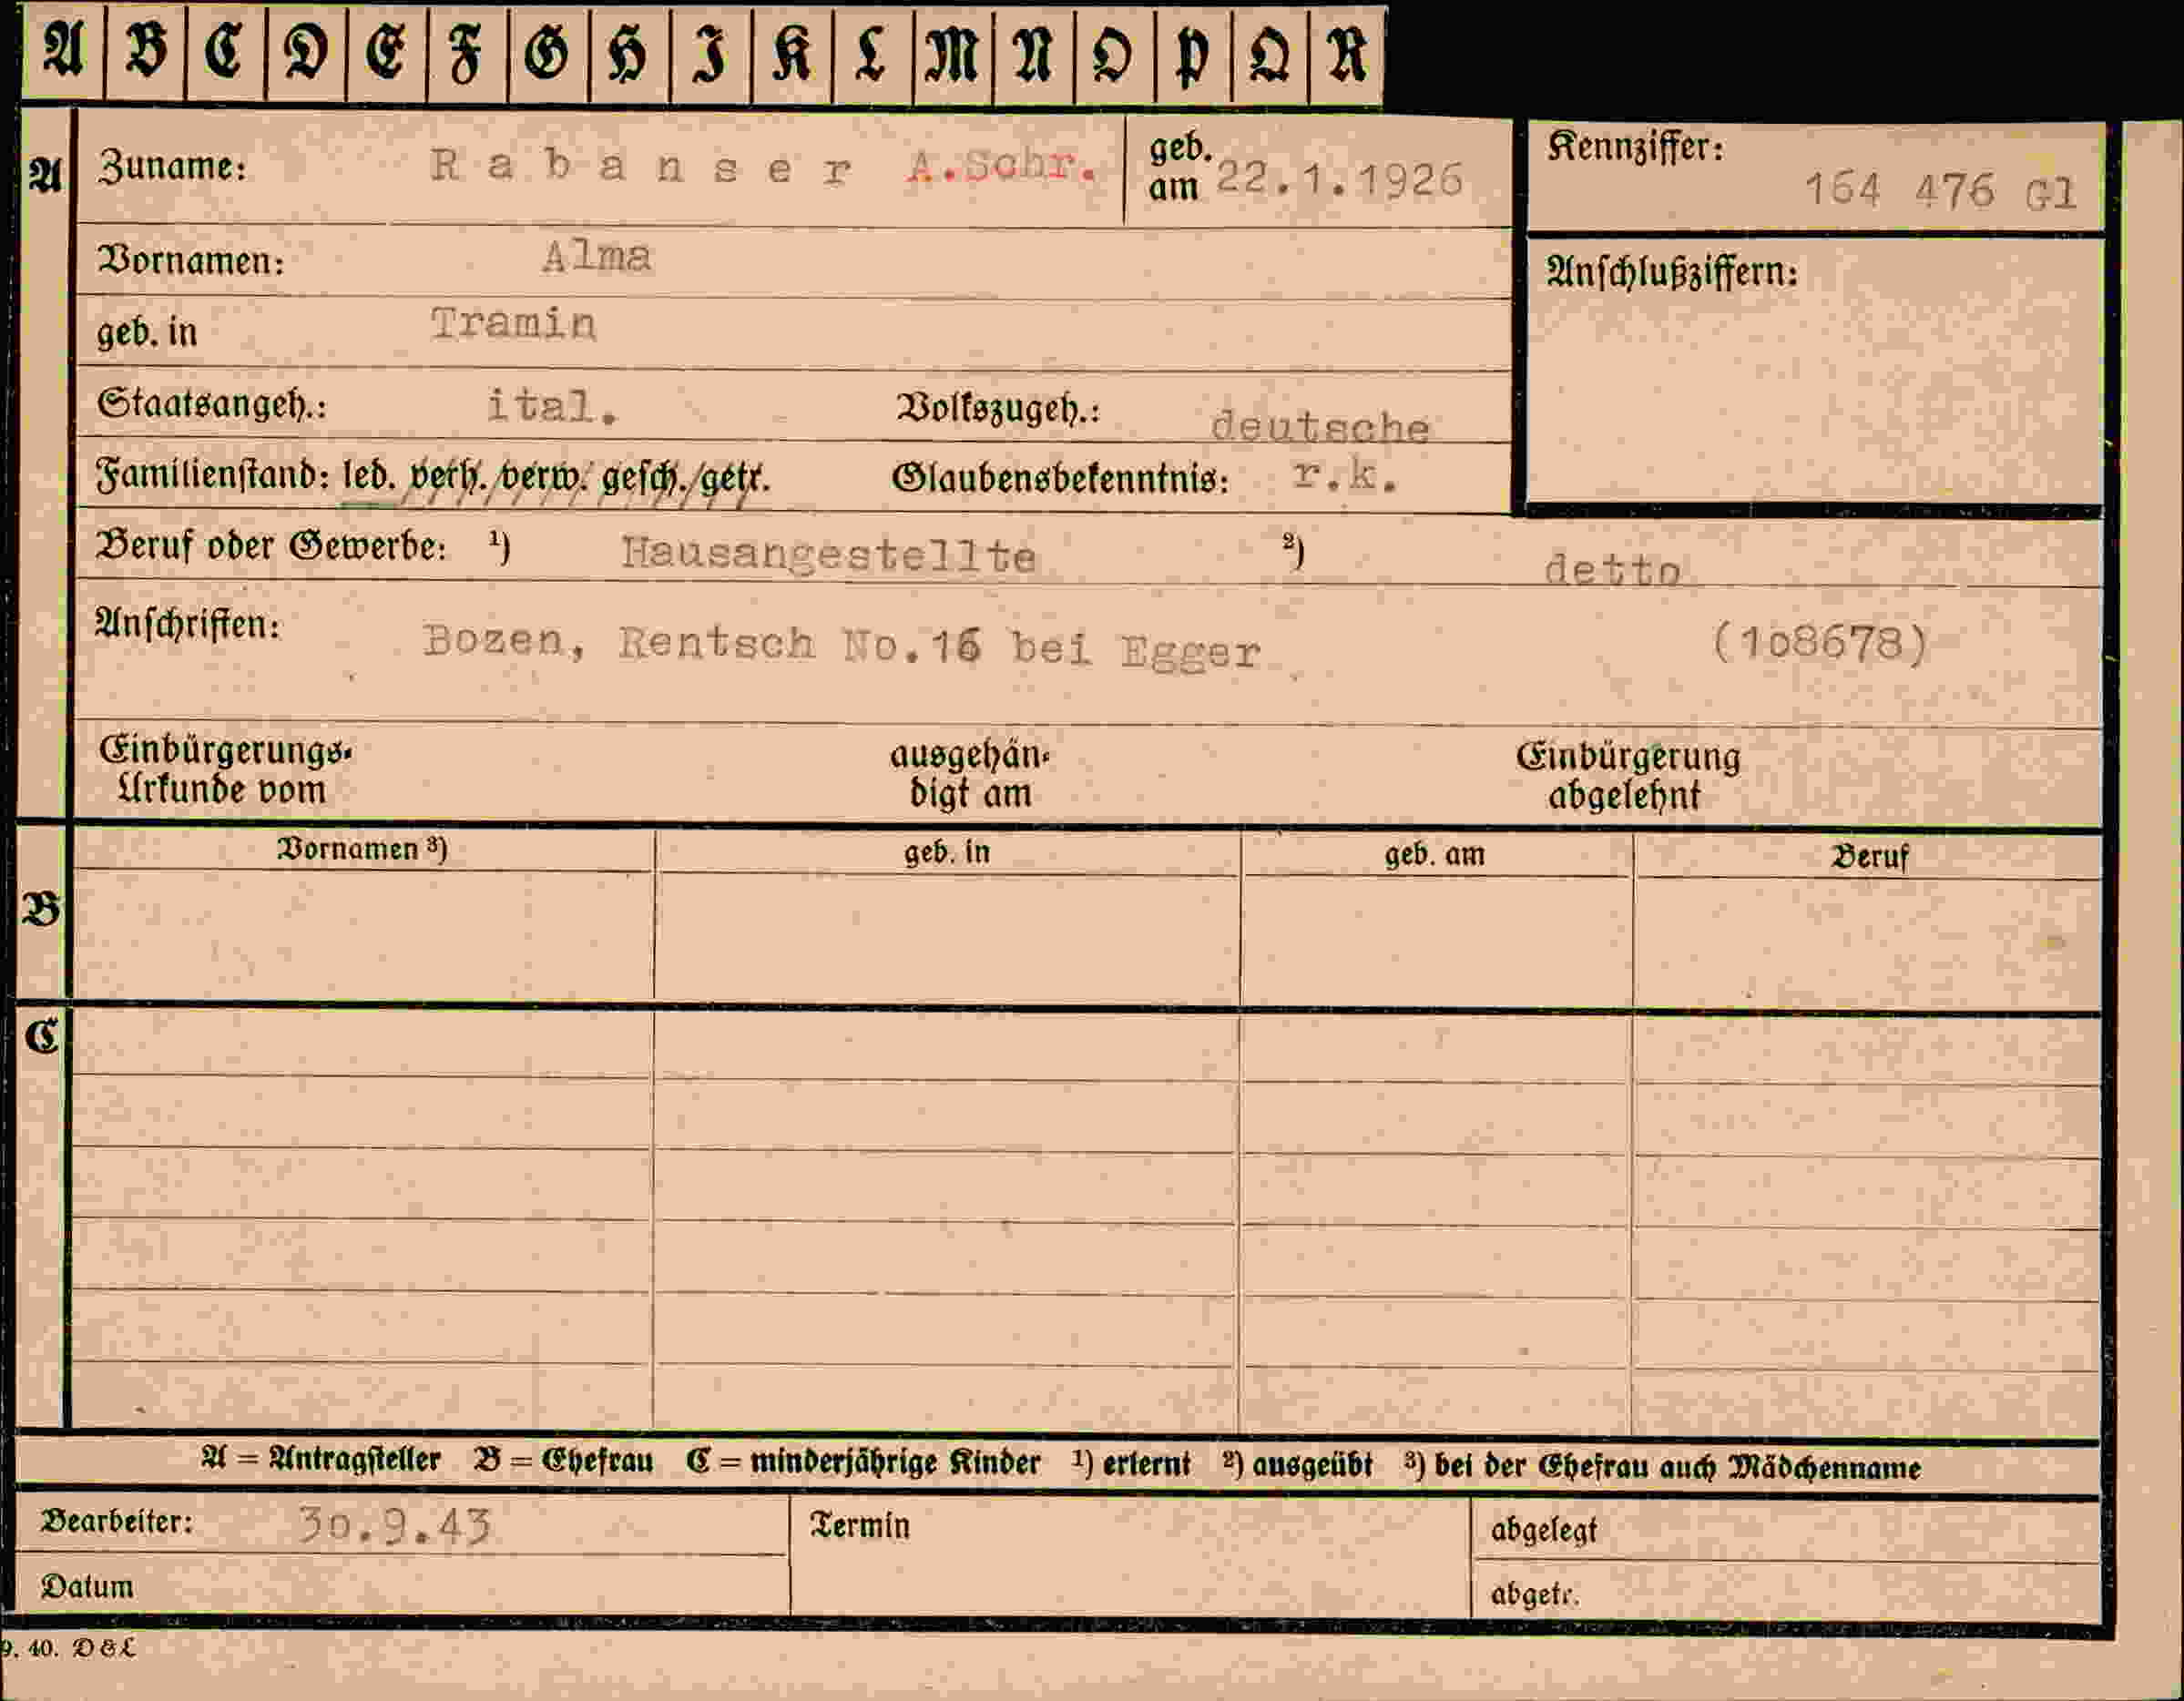 A B C D E F G H I K L M N O P Q R
A Zuname: Rabanser A.Schr. geb. am 22.1.1926 Kennziffer: 164 476 Gl
Vornamen: Alma Anschlußziffern:
geb. in Tramin
Staatsangeh.: ital. Volkszugeh.: deutsche
Familienstand: led. verh. verw. gesch./getr. Glaubensbekenntnis: r.k.
Beruf oder Gewerbe: ¹) Hausangestellte ²) detto
Anschriften: Bozen, Rentsch No.16 bei Egger (1o8678)
Einbürgerungs- ausgehän- Einbürgerung
Urkunde vom digt am abgelehnt
Vornamen ³) geb. in geb. am Beruf
B
C
A = Antragsteller B = Ehefrau C = minderjährige Kinder ¹) erlernt ²) ausgeübt ³) bei der Ehefrau auch Mädchenname
Bearbeiter: 3o.9.43 Termin abgelegt
Datum abgetr.
9. 40. D&L